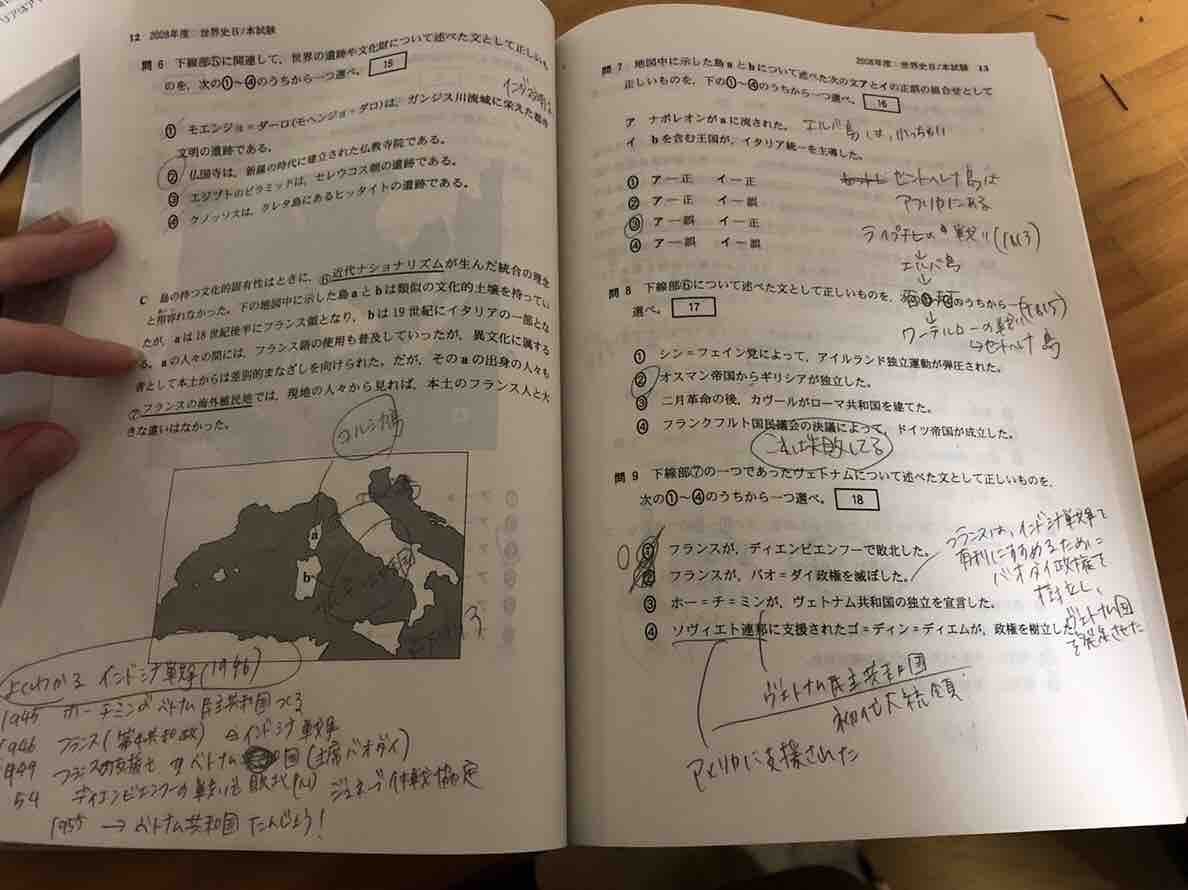 12 2008年度：世界史B/本試験
問 6 下線部⑤に関連して、世界の遺跡や文化財について述べた文として正しいも
のを、次の①～④のうちから一つ選べ。 15
① モエンジョ＝ダーロ(モヘンジョ＝ダロ)は、ガンジス川流域に栄えた都市
文明の遺跡である。
② 仏国寺は、新羅の時代に建立された仏教寺院である。
③ エジプトのピラミッドは、セレウコス朝の遺跡である。
④ クノッソスは、クレタ島にあるヒッタイトの遺跡である。
C 島の持つ文化的固有性はときに、⑥近代ナショナリズムが生んだ統合の理念
と相容れなかった。下の地図中に示した島aとbは類似の文化的土壌を持ってい
たが、aは18世紀後半にフランス領となり、bは19世紀にイタリアの一部とな
る。aの人々の間には、フランス語の使用も普及していったが、異文化に属する
者として本土からは差別的まなざしを向けられた。だが、そのaの出身の人々も
⑦フランスの海外植民地では、現地の人々から見れば、本土のフランス人と大
きな違いはなかった。
コルシカ島
a
b
よくわかる インドシナ戦争(1946)
1945 ホーチミンがベトナム民主共和国つくる
1946 フランス(第4共和政) インドシナ戦争
1949 フランスの支援で ベトナム国(主席バオダイ)
54 ディエンビエンフーの戦いで敗北(仏) ジュネーブ休戦協定
1955 → ベトナム共和国 たんじょう！
2008年度：世界史B/本試験 13
問 7 地図中に示した島aとbについて述べた次の文アとイの正誤の組合せとして
正しいものを、下の①～④のうちから一つ選べ。 16
ア ナポレオンがaに流された。 エルバ島は、
イ bを含む王国が、イタリア統一を主導した。
① ア―正 イ―正
② ア―正 イ―誤
③ ア―誤 イ―正
④ ア―誤 イ―誤
セントヘレナ島は
アフリカにある
ライプチヒの戦い(1813)
↓
エルバ島
↓
(1815)
ワーテルローの戦い
→セントヘレナ島
問 8 下線部⑥について述べた文として正しいものを、のうちから一
選べ。 17
① シン＝フェイン党によって、アイルランド独立運動が弾圧された。
② オスマン帝国からギリシアが独立した。
③ 二月革命の後、カヴールがローマ共和国を建てた。
④ フランクフルト国民議会の決議によって、ドイツ帝国が成立した。
これは失敗してる
問 9 下線部⑦の一つであったヴェトナムについて述べた文として正しいものを、
次の①～④のうちから一つ選べ。 18
① フランスが、ディエンビエンフーで敗北した。
② フランスが、バオ＝ダイ政権を滅ぼした。
③ ホー＝チ＝ミンが、ヴェトナム共和国の独立を宣言した。
④ ソヴィエト連邦に支援されたゴ＝ディン＝ディエムが、政権を樹立した。
フランスは、インドシナ戦争を
有利にすすめるために
バオダイ政権を
樹立し、
ヴェトナム国
を発足させた
ヴェトナム民主共和国
初代大統領
アメリカに支援された